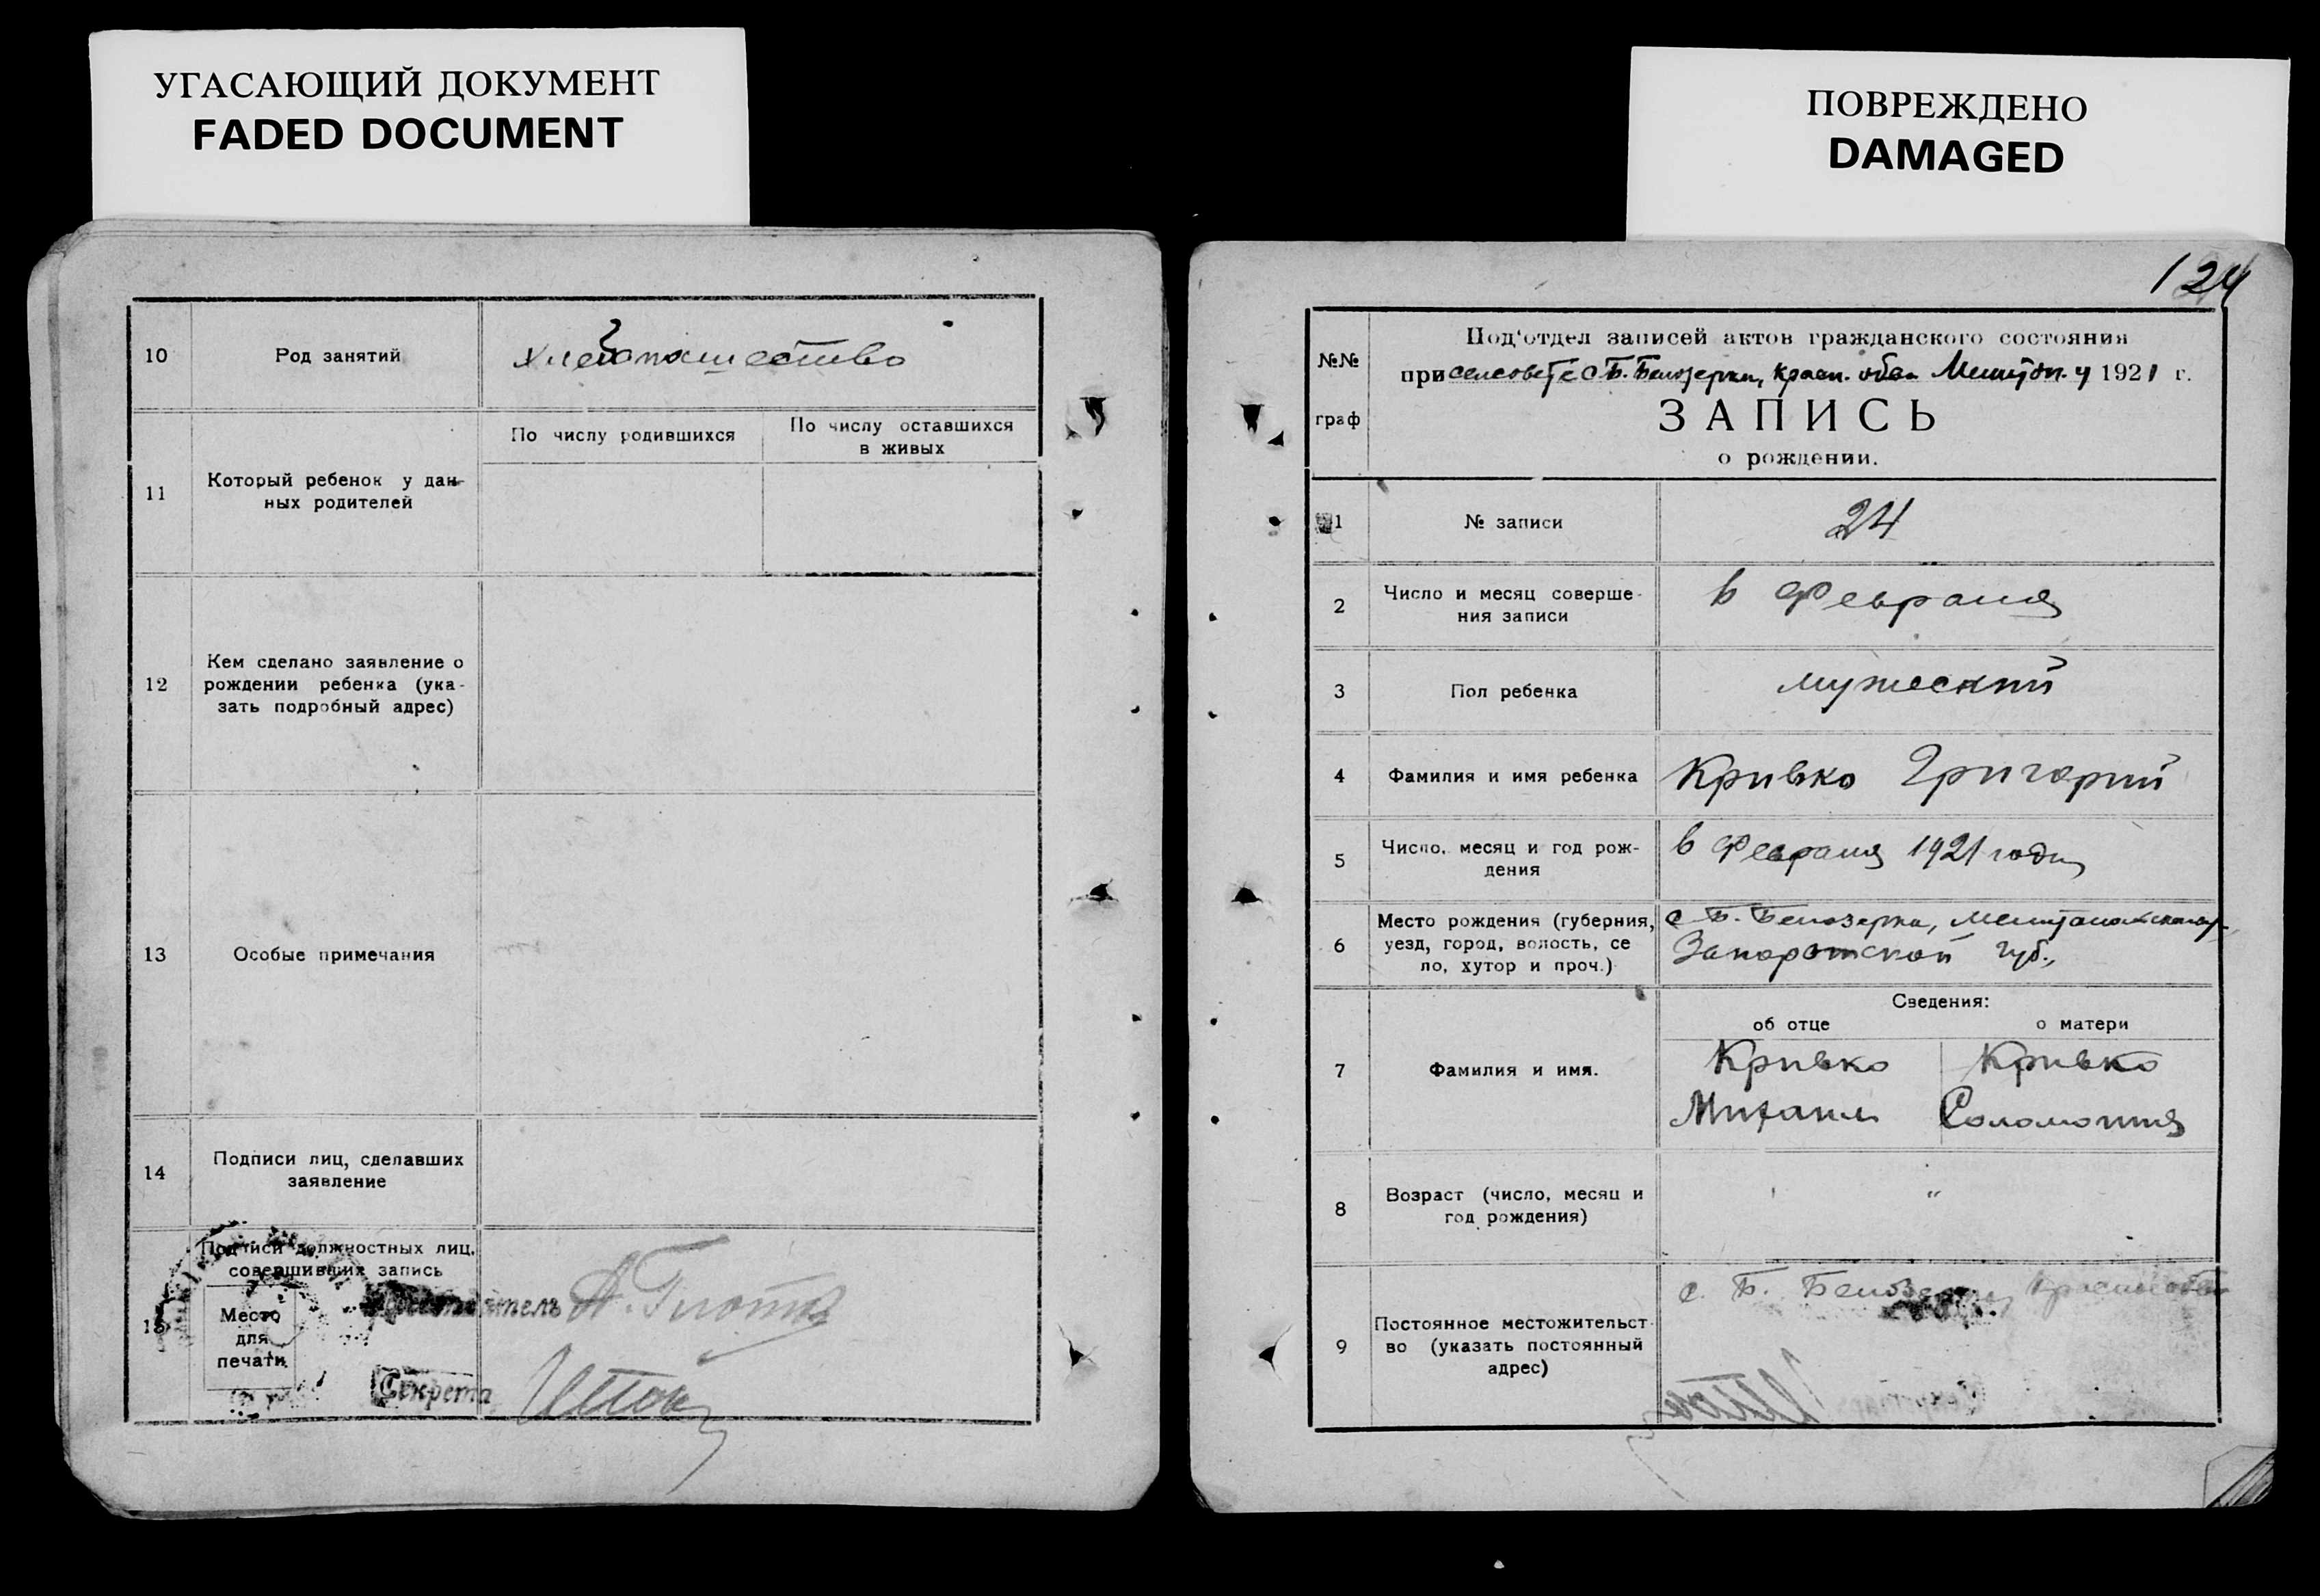 УГАСАЮЩИЙ ДОКУМЕНТ
FADED DOCUMENT
10
Род занятий
Хлебопашество
11
Который ребенок у дан-
ных родителей
По числу родившихся
По числу оставшихся
в живых
12
Кем сделано заявление о
рождении ребенка (ука-
зать подробный адрес)
13
Особые примечания
14
Подписи лиц, сделавших
заявление
15
Подписи должностных лиц,
совершивших запись
Место
для
печати
Секрета
ПОВРЕЖДЕНО
DAMAGED
124
№№
граф
Под'отдел записей актов гражданского состояния
при сельсовете с Б. Белозерки, 1921 г.
ЗАПИСЬ
о рождении.
1
№ записи
24
2
Число и месяц соверше-
ния записи
6 Февраля
3
Пол ребенка
мужеский
4
Фамилия и имя ребенка
Кривко Григорий
5
Число, месяц и год рож-
дения
6 Февраля 1921 года
6
Место рождения (губерния,
уезд, город, волость, се
ло, хутор и проч.)
с Б. Белозерка,
Запорожской губ.,
Сведения:
об отце
о матери
7
Фамилия и имя.
Кривко
Михаил
Кривко
Соломония
8
Возраст (число, месяц и
год рождения)
"
9
Постоянное местожительст-
во (указать постоянный
адрес)
с. Б. Белозерка